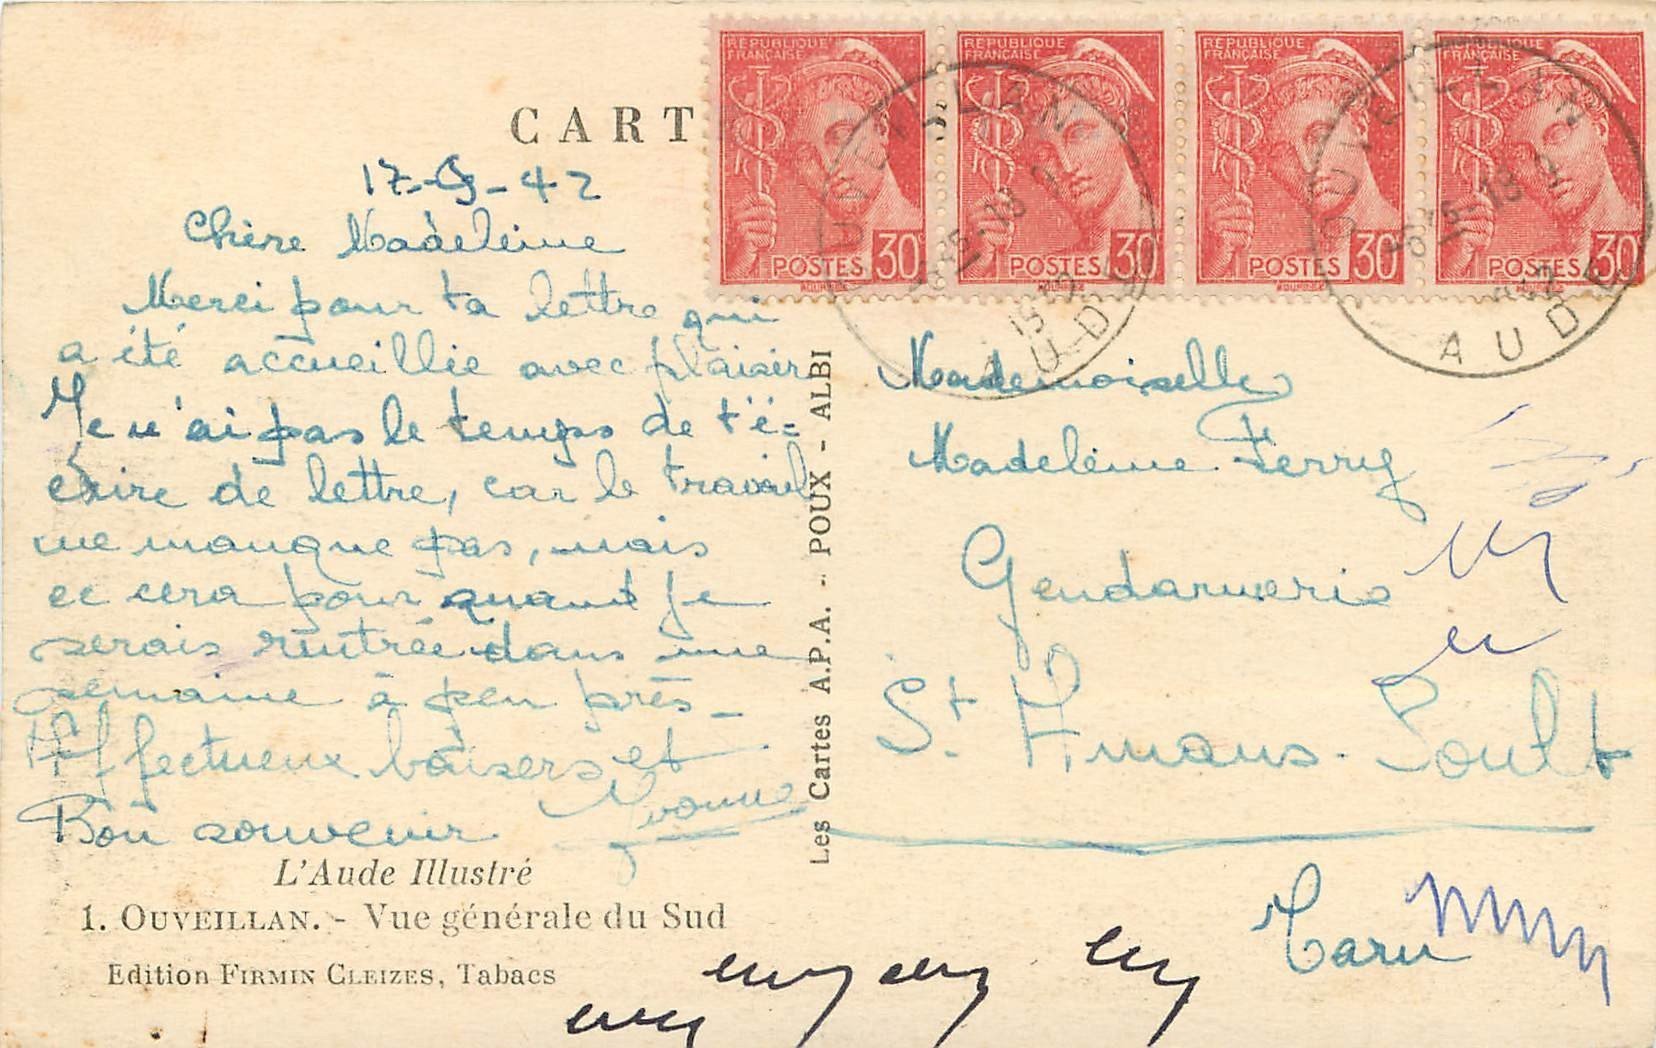 CART
RÉPUBLIQUE FRANÇAISE
POSTES 30
RÉPUBLIQUE FRANÇAISE
POSTES 30
RÉPUBLIQUE FRANÇAISE
POSTES 30
RÉPUBLIQUE FRANÇAISE
POSTES 30
OUVEILLAN
AUDE
OUVEILLAN
AUDE
17-9-42
Chère Madeleine
Merci pour ta lettre qui
a été accueillie avec plaisir
Je n'ai pas le temps de t'é=
crire de lettre, car le travail
ne manque pas, mais
ce cera pour quant je
serais rentrée dans une
semaine à peu près_
Affectueux baisers et
Bon souvenir Yvonne
L'Aude Illustré
1. OUVEILLAN. - Vue générale du Sud
Edition FIRMIN CLEIZES, Tabacs
Les Cartes A.P.A. - POUX - ALBI
Mademoiselle
Madeleine Ferry
Gendarmerie
St Amans-Soult
Tarn